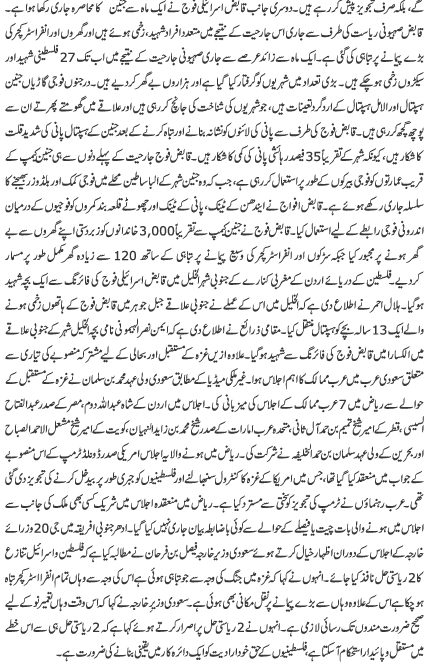 گے، بلکہ صرف تجویز پیش کر رہے ہیں۔ دوسری جانب قابض اسرائیلی فوج نے ایک ماہ سے جنین کا محاصرہ جاری رکھا ہوا ہے۔
قابض صہیونی ریاست کی طرف سے جاری اس جارحیت کے نتیجے میں متعدد افراد شہید، زخمی ہوئے ہیں اور گھروں اور انفراسٹرکچر کی
بڑے پیمانے پر تباہی کی گئی ہے۔ ایک ماہ سے زائد عرصے سے جاری صہیونی جارحیت کے نتیجے میں اب تک 27 فلسطینی شہید اور
سیکڑوں زخمی ہو چکے ہیں۔ بڑی تعداد میں شہریوں کو گرفتار کیا گیا ہے اور ہزاروں بے گھر کر دیے ہیں۔ درجنوں فوجی گاڑیاں جنین
ہسپتال اور الامل ہسپتال کے ارد گرد تعینات ہیں، جو شہریوں کی شناخت کی جانچ کر رہی ہیں اور علاقے میں گھومتے پھرتے ان سے
پوچھ گچھ کر رہی ہیں۔ قابض فوج کی طرف سے پانی کی لائنوں کو نشانہ بنانے اور تباہ کرنے کے بعد جنین کے ہسپتال پانی کی شدید قلت
کا شکار ہیں، کیونکہ شہر کے تقریباً 35 فیصد رہائشی پانی کی کمی کا شکار ہیں۔ قابض فوج جارحیت کے پہلے دنوں سے ہی جنین کیمپ کے
قریب عمارتوں کو فوجی بیرکوں کے طور پر استعمال کر رہی ہے، جب کہ وہ جنین شہر کے البساطین محلے میں فوجی کمک اور بلڈوزر بھیجنے کا
سلسلہ جاری رکھے ہوئے ہے۔ قابض افواج نے ایندھن کے ٹینک، پانی کے ٹینک اور چھوٹے قلعہ بند کمروں کو فوجیوں کے درمیان
اندرونی فوجی رابطے کے لیے استعمال کیا۔ قابض فوج نے جنین کیمپ سے تقریباً 3,000 خاندانوں کو زبردستی اپنے گھروں سے بے
گھر ہونے پر مجبور کیا جبکہ سڑکوں اور انفراسٹرکچر کی وسیع پیمانے پر تباہی کے ساتھ 120 سے زیادہ گھر مکمل طور پر مسمار
کر دیے۔ فلسطین کے دریائے اردن کے مغربی کنارے کے جنوبی شہر الخلیل میں قابض اسرائیلی فوج کی فائرنگ سے ایک بچہ شہید
ہو گیا۔ ہلال احمر نے اطلاع دی ہے کہ الخلیل میں اس کے عملے نے جنوبی علاقے جبل جوہر میں قابض فوج کے ہاتھوں زخمی ہونے
والے ایک 13 سالہ بچے کو ہسپتال منتقل کیا۔ مقامی ذرائع نے اطلاع دی ہے کہ ایمن نصر الہیمونی نامی بچہ الخلیل شہر کے جنوبی علاقے
میں قابض فوج کی فائرنگ سے شہید ہو گیا۔ علاوہ ازیں غزہ کے مستقبل اور بحالی کے لیے مشترکہ منصوبے کی تیاری سے
متعلق سعودی عرب میں عرب ممالک کا اہم اجلاس ہوا۔ غیر ملکی میڈیا کے مطابق سعودی ولی عہد محمد بن سلمان نے غزہ کے مستقبل کے
حوالے سے ریاض میں 7 عرب ممالک کے اجلاس کی میزبانی کی۔ اجلاس میں اردن کے شاہ عبداللہ دوم، مصر کے صدر عبدالفتاح
السیسی، قطر کے امیر شیخ تمیم بن حمد آل ثانی، متحدہ عرب امارات کے صدر شیخ محمد بن زاید النہیان، کویت کے امیر شیخ مشعل الاحمد الصباح
اور بحرین کے ولی عہد سلمان بن حمد الخلیفہ نے شرکت کی۔ ریاض میں ہونے والا یہ اجلاس امریکی صدر ڈونلڈ ٹرمپ کے اس منصوبے
کے جواب میں منعقد کیا گیا تھا، جس میں امریکا کے غزہ کا کنٹرول سنبھالنے اور فلسطینیوں کو جبری طور پر بیدخل کرنے کی تجویز دی گئی
تھی۔ عرب رہنماؤں نے ٹرمپ کی تجویز کو سختی سے مسترد کیا ہے۔ ریاض میں منعقدہ اجلاس میں شریک کسی بھی ملک کی جانب سے
اجلاس میں ہونے والی بات چیت یا فیصلے کے حوالے سے کوئی باضابطہ بیان جاری نہیں کیا گیا۔ ادھر جنوبی افریقہ میں جی 20 وزرائے
خارجہ کے اجلاس کے دوران اظہار خیال کرتے ہوئے سعودی وزیر خارجہ فیصل بن فرحان نے مطالبہ کیا ہے کہ فلسطین و اسرائیل تنازع
کا 2 ریاستی حل نافذ کیا جائے۔ انہوں نے کہا کہ غزہ میں جنگ کی وجہ سے جو تباہی ہوئی ہے اس کی وجہ سے وہاں تمام انفرا اسٹرکچر تباہ
ہو چکا ہے اس کے علاوہ وہاں سے بڑے پیمانے پر نقل مکانی بھی ہوئی ہے۔ سعودی وزیر خارجہ نے کہا کہ اس وقت وہاں تعمیر نو کے لیے
ضرورت مندوں تک رسائی لازمی ہے۔ انہوں نے 2 ریاستی حل پر اصرار کرتے ہوئے کہا ہے کہ 2 ریاستی حل ہی سے اس خطے
میں مستقل و پائیدار استحکام آ سکتا ہے، فلسطینیوں کے حق خود ارادیت کو ایک دائرہ کار میں یقینی بنانے کی ضرورت ہے۔